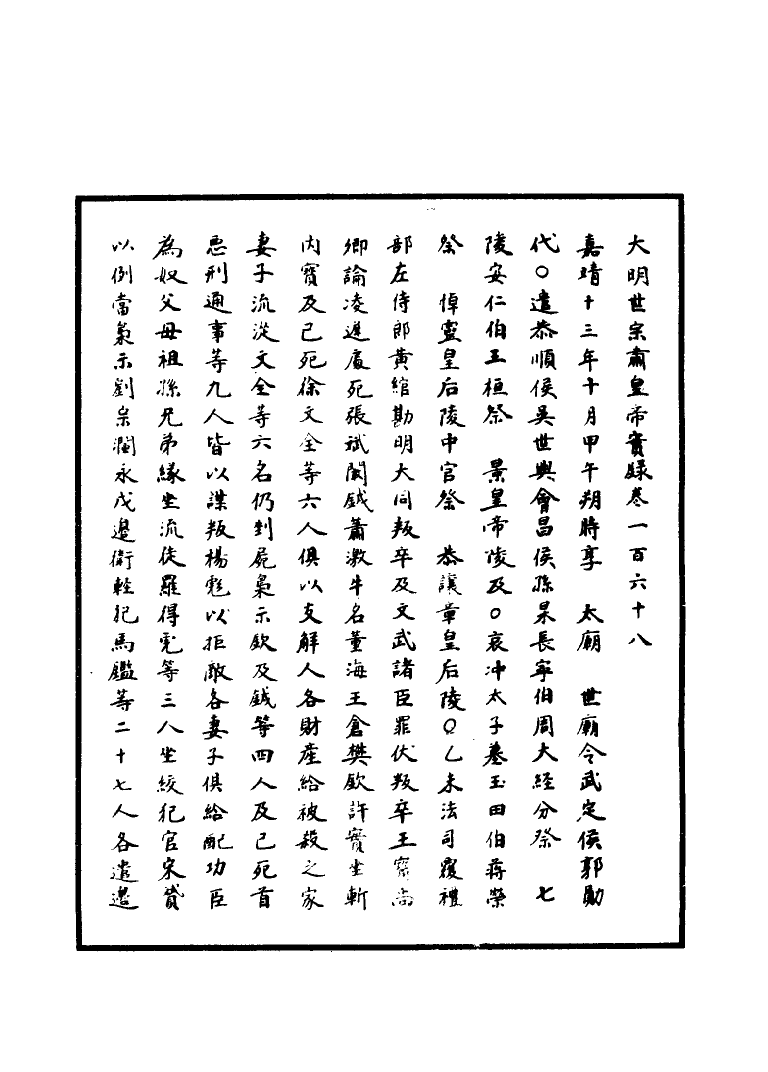 大明世宗肅皇帝實錄卷一百六十八
嘉靖十三年十月甲午朔時享　太廟　世廟令武定侯郭勛
代○遣恭順侯吳世興會昌侯孫杲長寧伯周大經分祭　七
陵安仁伯王桓祭　景皇帝陵及○哀冲太子墓玉田伯蔣榮
祭　悼靈皇后陵中官祭　恭讓章皇后陵○乙未法司覆禮
部左侍郎黃綰勘明大同叛卒及文武諸臣罪伏叛卒王寶尚
卿論凌遲處死張斌関鉞蕭漵牛名董海王倉樊欽許實坐斬
内寶及已死徐文全等六人俱以支解人各財產給被殺之家
妻子流從文全等六名仍剉屍梟示欽及鉞等四人及已死首
惡刑通事等九人皆以謀叛楊彪以拒敵各妻子俱給配功臣
為奴父母祖孫兄弟緣坐流徒羅得兎等三人坐絞犯官宋贇
以例當梟示劉宗濶永戍邊衛輕犯馬鑑等二十七人各遣邊